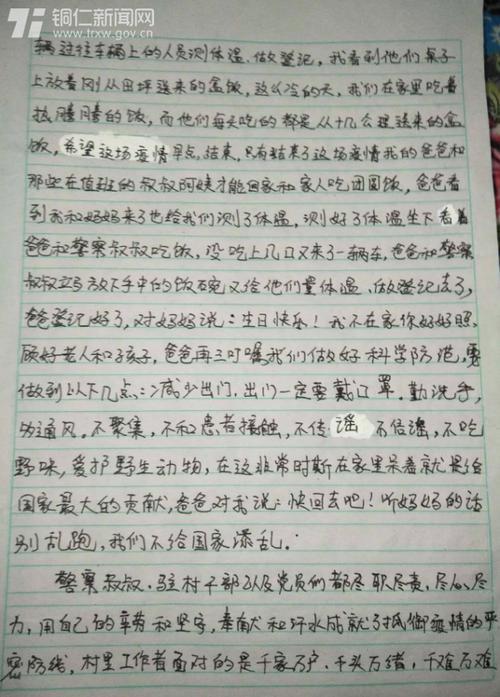 铜仁新闻网
www.trxw.gov.cn
辆过往车辆上的人员测体温、做登记,我看到他们桌子
上放着刚从田坪送来的盒饭,这么冷的天,我们在家里吃着
热腾腾的饭,而他们每天吃的都是从十几公里送来的盒
饭,希望这场疫情早点结束,只有结束了这场疫情我的爸爸和
那些在值班的叔叔阿姨才能回家和家人吃团圆饭,爸爸看
到我和妈妈来了也给我们测了体温,测好了体温坐下看着
爸爸和警察叔叔吃饭,没吃上几口又来了一辆车,爸爸和警察
叔叔立马放下手中的饭碗又给他们量体温、做登记去了,
爸爸登记好了,对妈妈说:生日快乐!我不在家你好好照
顾好老人和孩子,爸爸再三叮嘱我们做好科学防范,要
做到以下几点:减少出门,出门一定要戴口罩。勤洗手,
勤通风。不聚集,不和患者接触,不传谣 不信谣,不吃
野味,爱护野生动物,在这非常时期在家里呆着就是给
国家最大的贡献,爸爸对我说:快回去吧!听妈妈的话
别乱跑,我们不给国家添乱。
警察叔叔、驻村干部以及党员们都尽职尽责、尽心、尽
力,用自己的辛劳和坚守,奉献和汗水成就了抵御疫情的严
密防线,村里工作者面对的是千家万户、千头万绪,千难万难